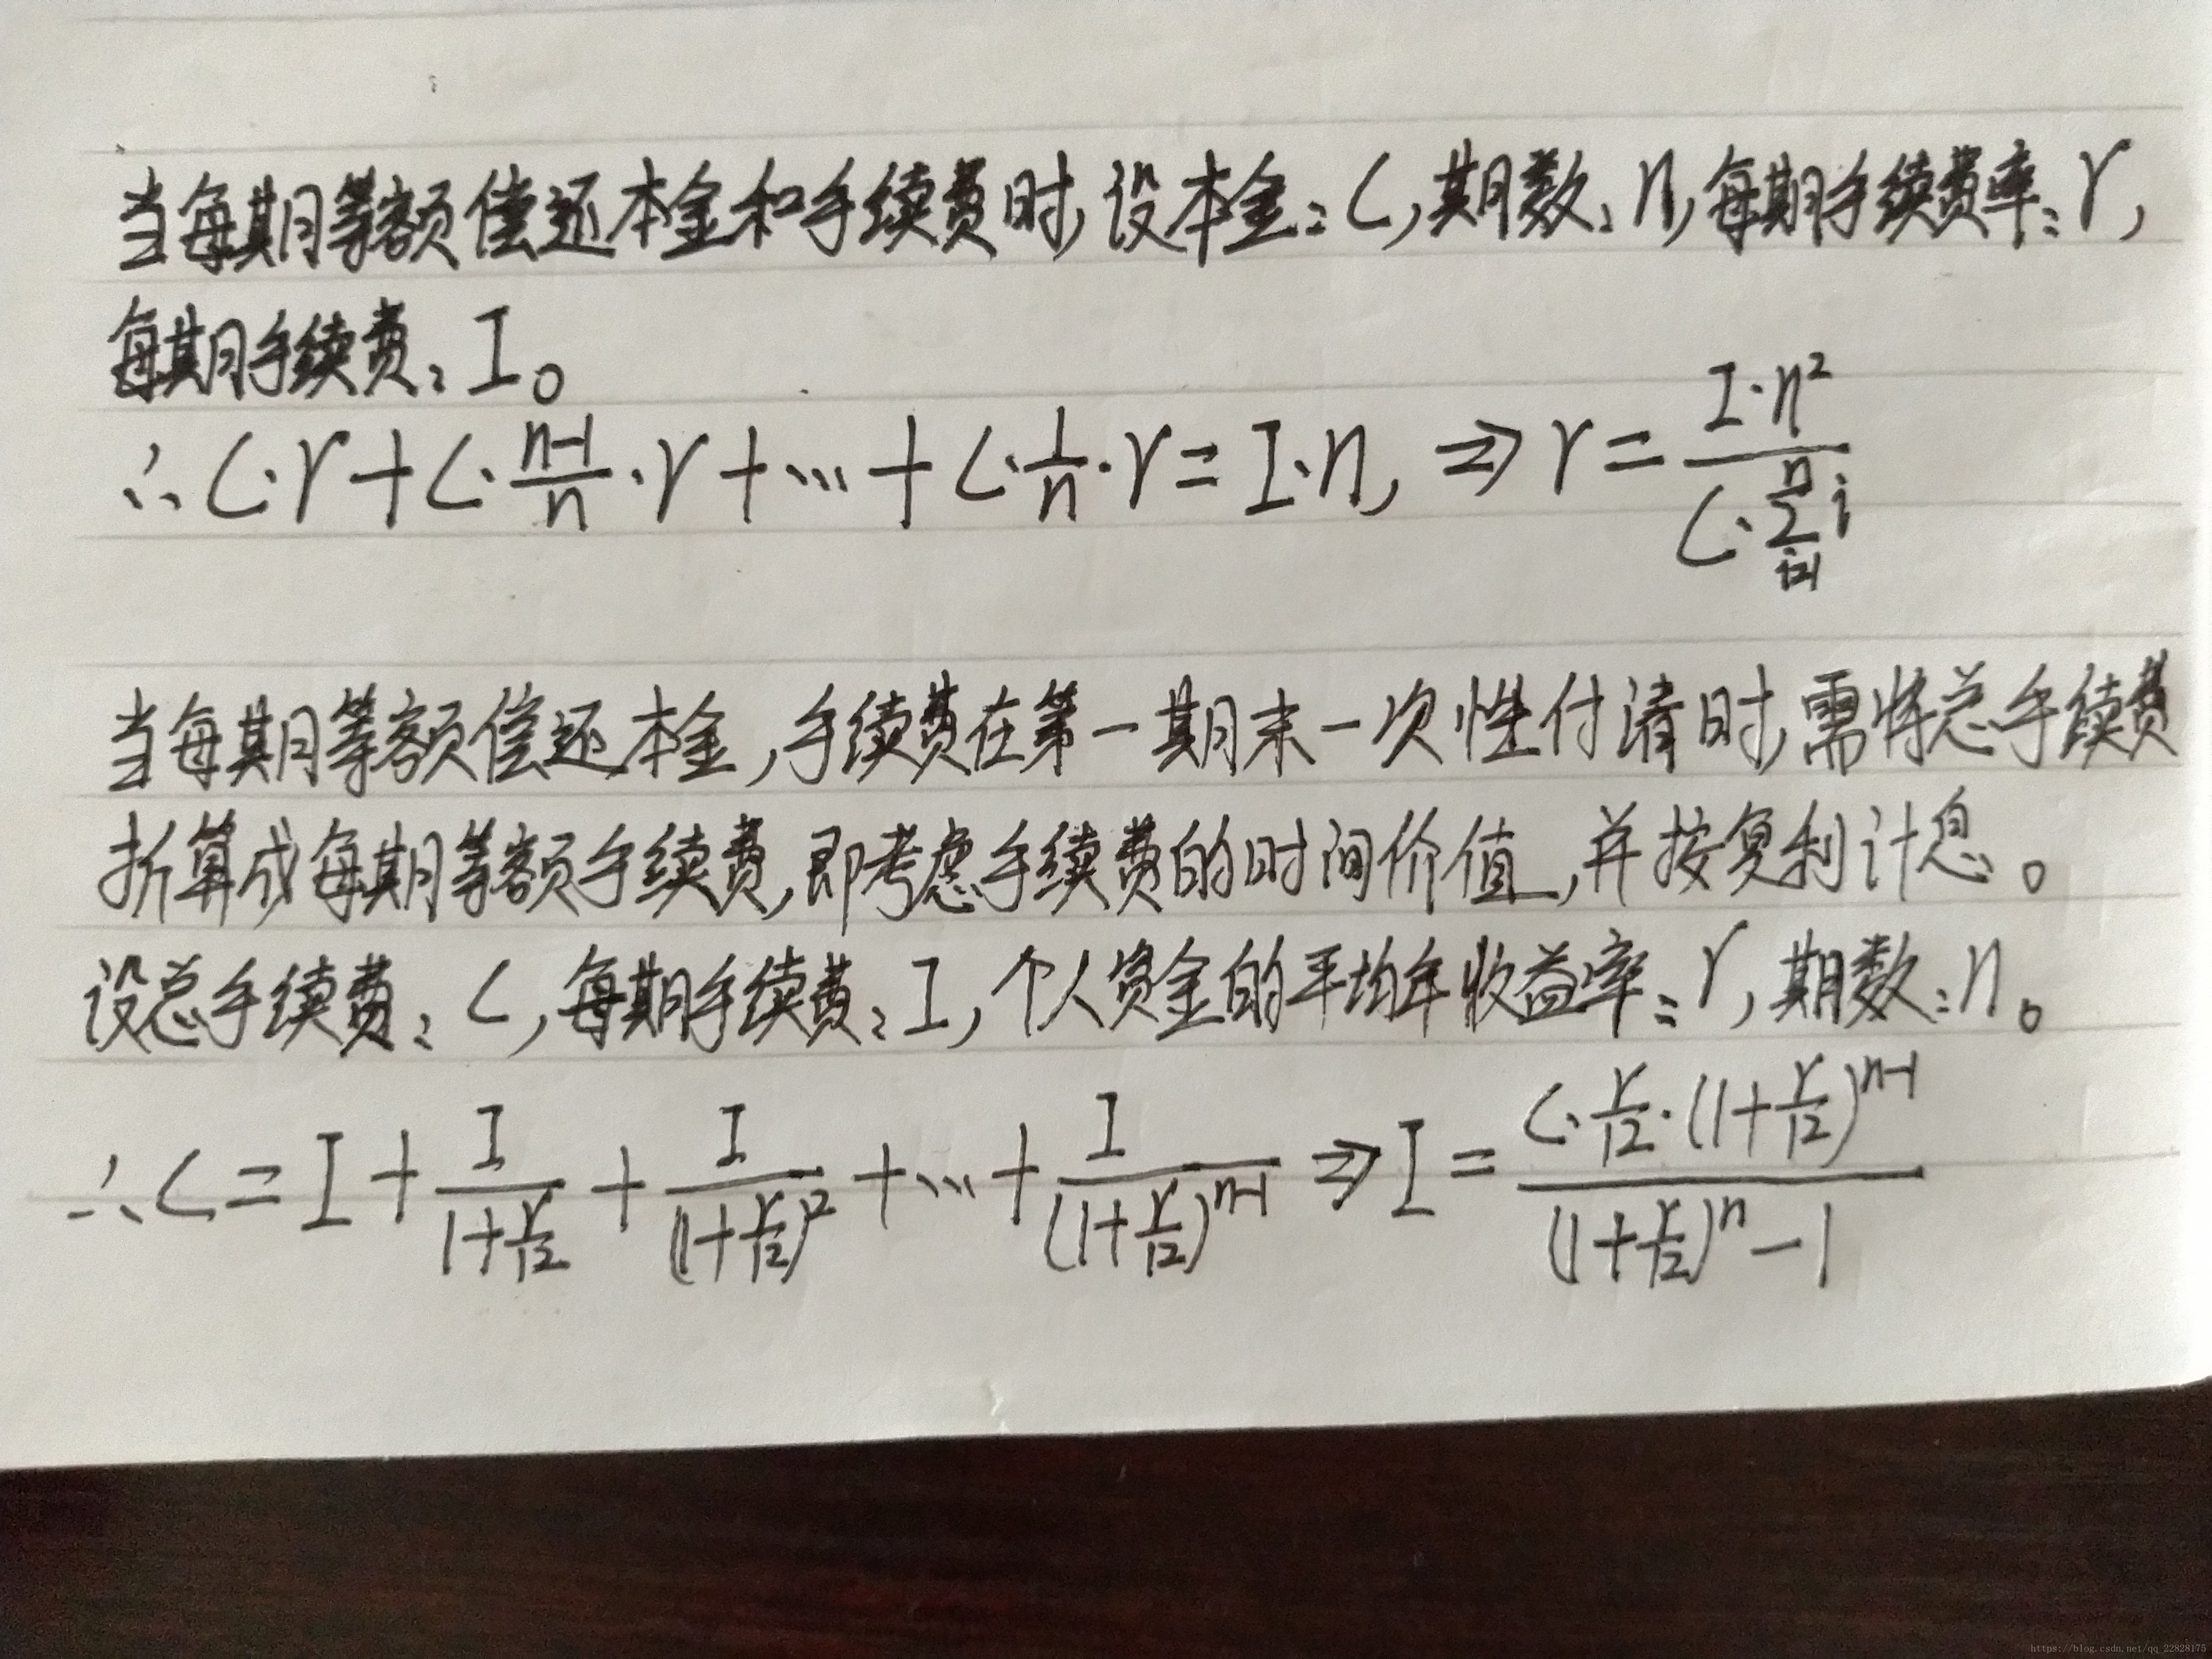 当每期等额偿还本金和手续费时,设本金:C,期数:n,每期手续费率:r,
每期手续费:I。
∴ C·r+C·\frac{n-1}{n}·r+…+C·\frac{1}{n}·r=I·n, ⇒ r=\frac{I·n^2}{C·\sum_{i=1}^{n}i}
当每期等额偿还本金,手续费在第一期末一次性付清时,需将总手续费
折算成每期等额手续费,即考虑手续费的时间价值,并按复利计息。
设总手续费:C,每期手续费:I,个人资金的平均年收益率:r,期数:n。
∴ C=I+\frac{I}{1+\frac{r}{12}}+\frac{I}{(1+\frac{r}{12})^2}+…+\frac{I}{(1+\frac{r}{12})^{n-1}} ⇒ I=\frac{C·\frac{r}{12}·(1+\frac{r}{12})^{n-1}}{(1+\frac{r}{12})^n-1}
https://blog.csdn.net/qq_22828175